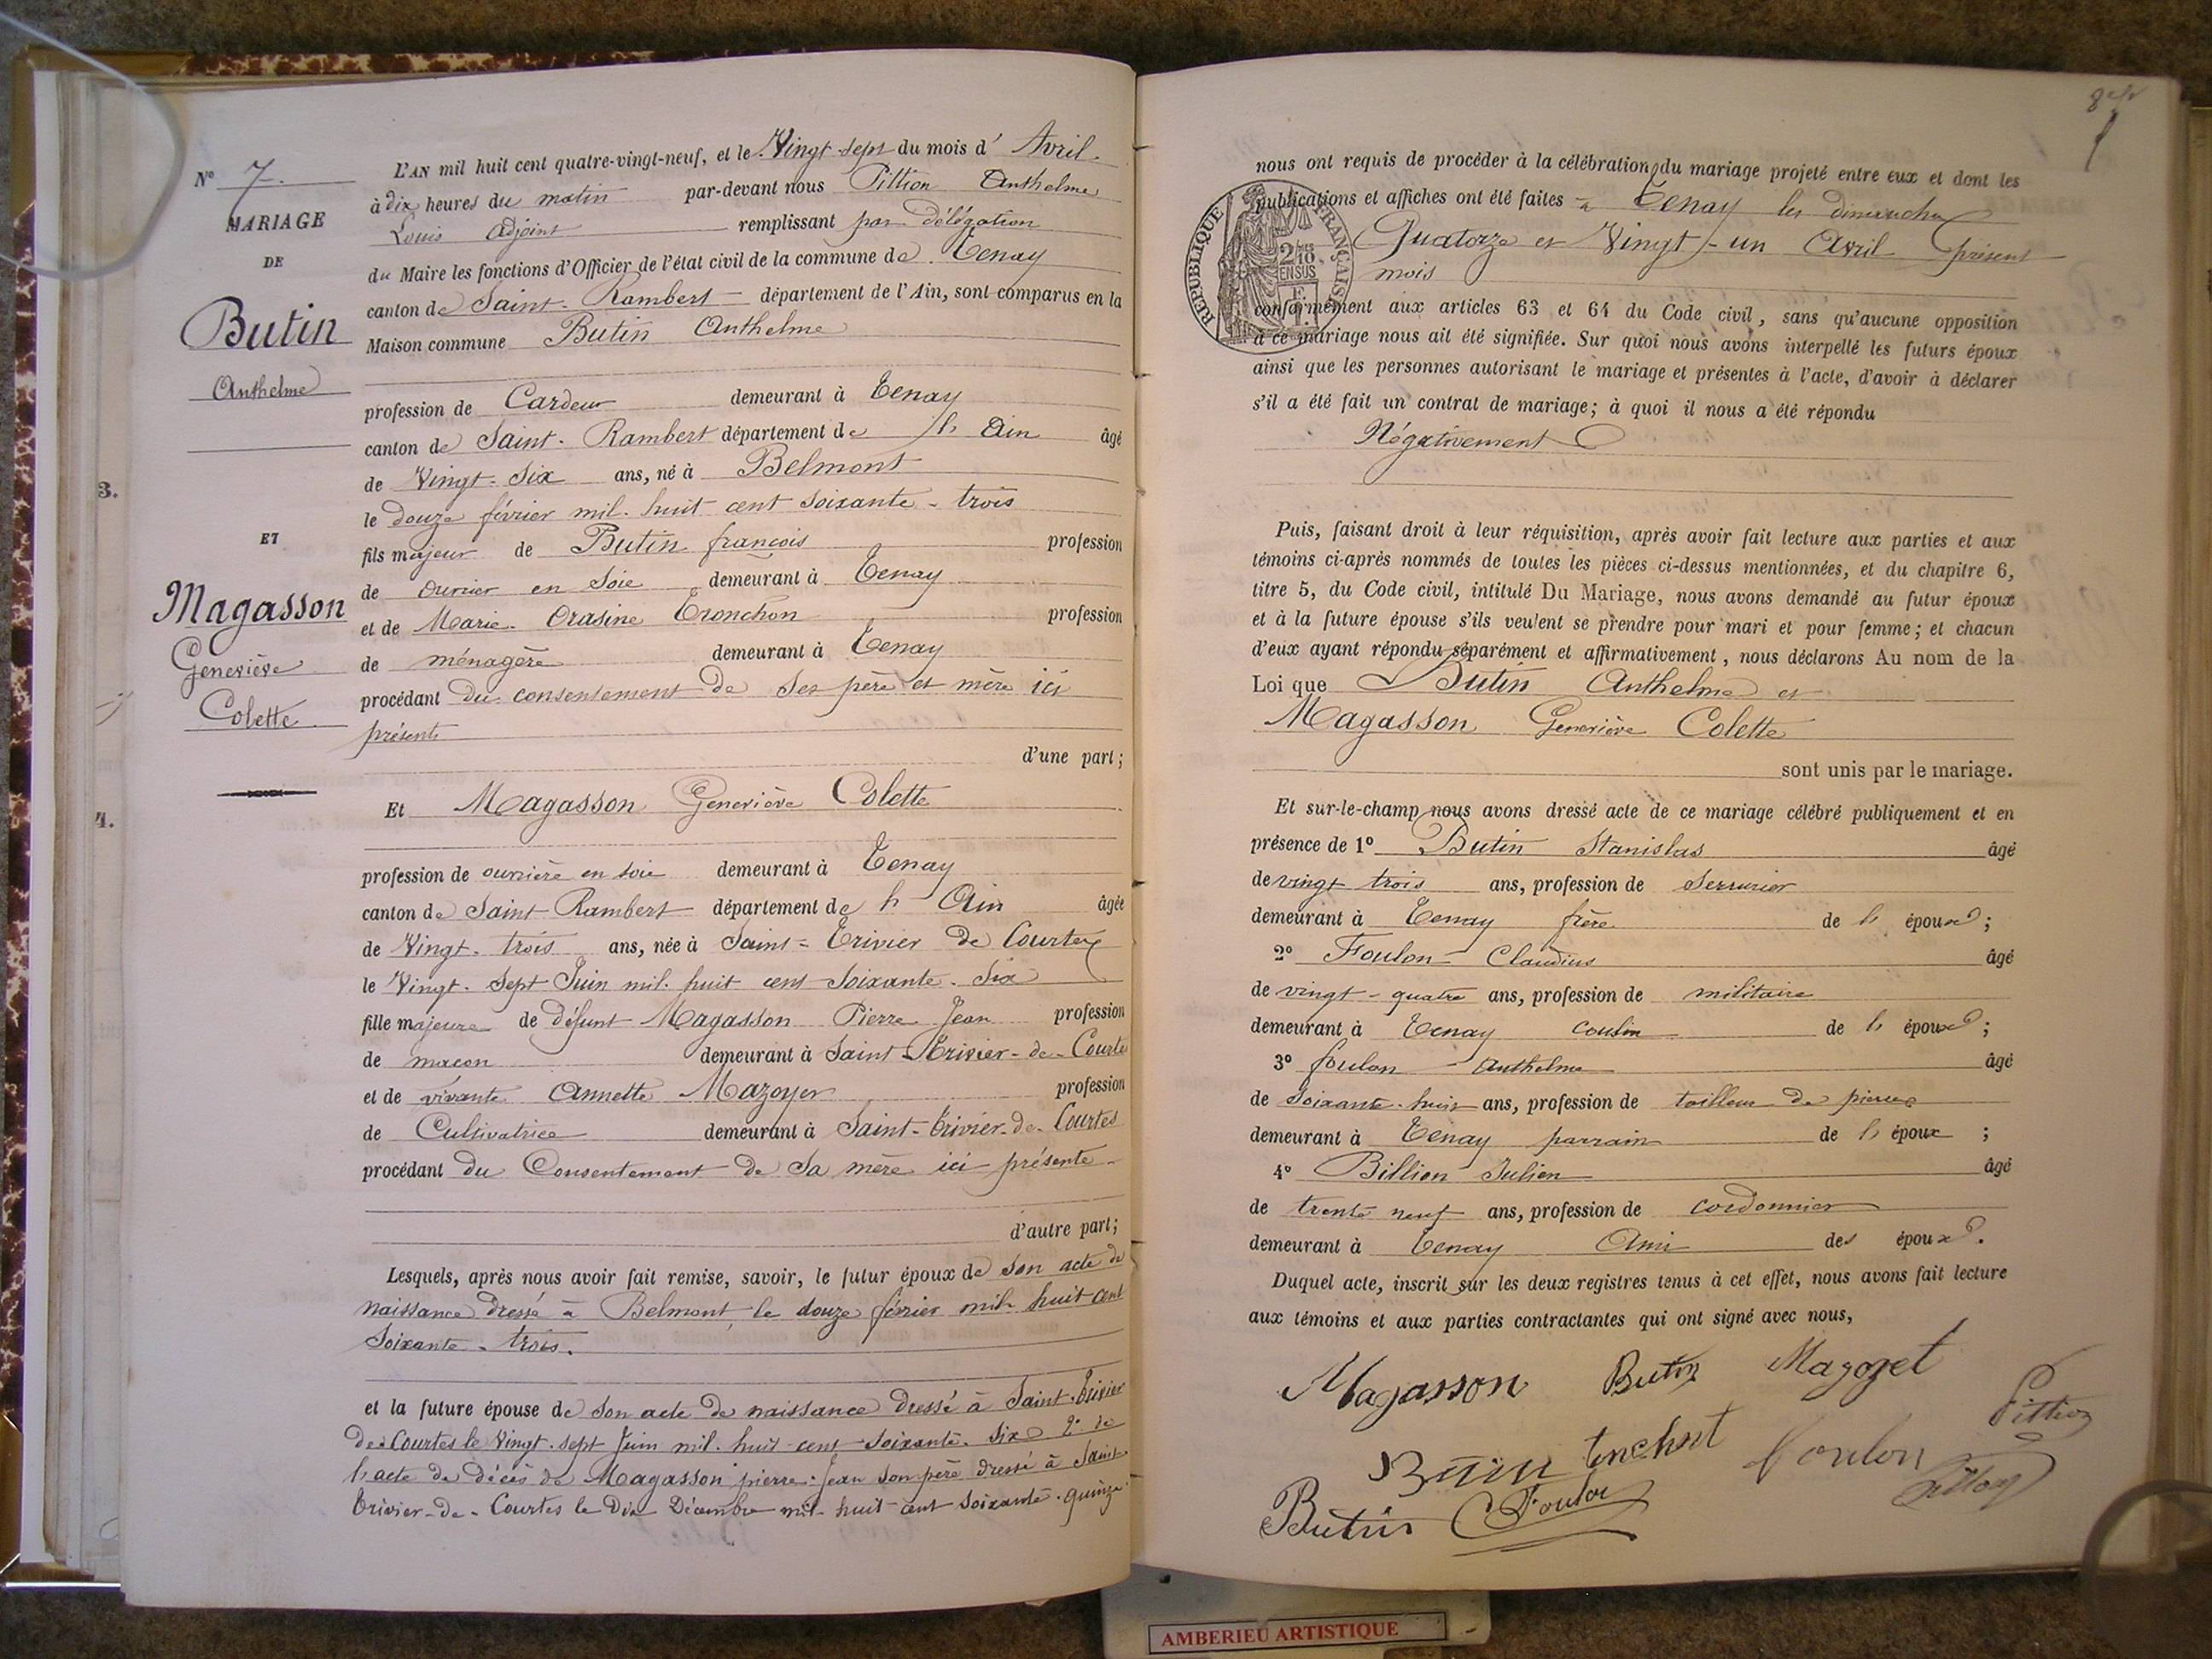 N° 7.
MARIAGE
DE
Butin
Anthelme
ET
Magasson
Geneviève
Colette
3.
4.
L'AN mil huit cent quatre-vingt-neuf, et le Vingt sept du mois d' Avril
à dix heures du matin par-devant nous Pittion Anthelme
Louis Adjoint remplissant par délégation
du Maire les fonctions d'Officier de l'état civil de la commune de Tenay
canton de Saint-Rambert département de l'Ain, sont comparus en la
Maison commune Butin Anthelme
profession de Cardeur demeurant à Tenay
canton de Saint-Rambert département de l'Ain âgé
de Vingt-Six ans, né à Belmont
le douze février mil huit cent soixante-trois
fils majeur de Butin françois profession
de ouvrier en Soie demeurant à Tenay
et de Marie Orasine Tronchon profession
de ménagère demeurant à Tenay
procédant du consentement de Ses père et mère ici
présents
d'une part;
Et Magasson Geneviève Colette
profession de ouvrière en soie demeurant à Tenay
canton de Saint-Rambert département de l'Ain âgée
de Vingt-trois ans, née à Saint-Trivier de Courtes
le Vingt-Sept Juin mil huit cent Soixante-Six
fille majeure de défunt Magasson Pierre Jean profession
de macon demeurant à Saint-Trivier-de-Courtes
et de vivante Annette Mazoyer profession
de Cultivatrice demeurant à Saint-Trivier-de-Courtes
procédant du Consentement de Sa mère ici présente
d'autre part;
Lesquels, après nous avoir fait remise, savoir, le futur époux de Son acte de
naissance dressé à Belmont le douze février mil huit cent
Soixante-trois.
et la future épouse de Son acte de naissance dressé à Saint-Trivier
de Courtes le Vingt-sept Juin mil huit cent Soixante-Six 2° de
l'acte de décès de Magasson pierre-Jean son père dressé à Saint-
Trivier-de-Courtes le Dix Décembre mil huit cent Soixante-quinze
8
nous ont requis de procéder à la célébration du mariage projeté entre eux et dont les
publications et affiches ont été faites à Tenay les dimanches
Quatorze et Vingt-un Avril présent
mois
REPUBLIQUE FRANÇAISE
2/10 EN SUS
conformément aux articles 63 et 64 du Code civil, sans qu'aucune opposition
à ce mariage nous ait été signifiée. Sur quoi nous avons interpellé les futurs époux
ainsi que les personnes autorisant le mariage et présentes à l'acte, d'avoir à déclarer
s'il a été fait un contrat de mariage; à quoi il nous a été répondu
Négativement
Puis, faisant droit à leur réquisition, après avoir fait lecture aux parties et aux
témoins ci-après nommés de toutes les pièces ci-dessus mentionnées, et du chapitre 6,
titre 5, du Code civil, intitulé Du Mariage, nous avons demandé au futur époux
et à la future épouse s'ils veulent se prendre pour mari et pour femme; et chacun
d'eux ayant répondu séparément et affirmativement, nous déclarons Au nom de la
Loi que Butin Anthelme et
Magasson Geneviève Colette
sont unis par le mariage.
Et sur-le-champ nous avons dressé acte de ce mariage célébré publiquement et en
présence de 1° Butin Stanislas âgé
de vingt trois ans, profession de Serrurier
demeurant à Tenay frère de l'époux;
2° Foulon Claudius âgé
de vingt-quatre ans, profession de militaire
demeurant à Tenay cousin de l'époux;
3° foulon Anthelme âgé
de Soixante-huit ans, profession de tailleur de pierres
demeurant à Tenay parrain de l'époux;
4° Billion Julien âgé
de trente neuf ans, profession de cordonnier
demeurant à Tenay Ami des époux.
Duquel acte, inscrit sur les deux registres tenus à cet effet, nous avons fait lecture
aux témoins et aux parties contractantes qui ont signé avec nous,
Magasson Butin
Pittion
Butin Foulon
Butin C Foulon
AMBERIEU ARTISTIQUE